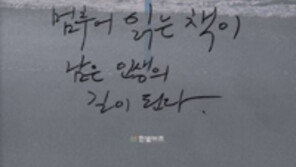 멈추어 읽는 책이
남은 인생의
길이 된다.